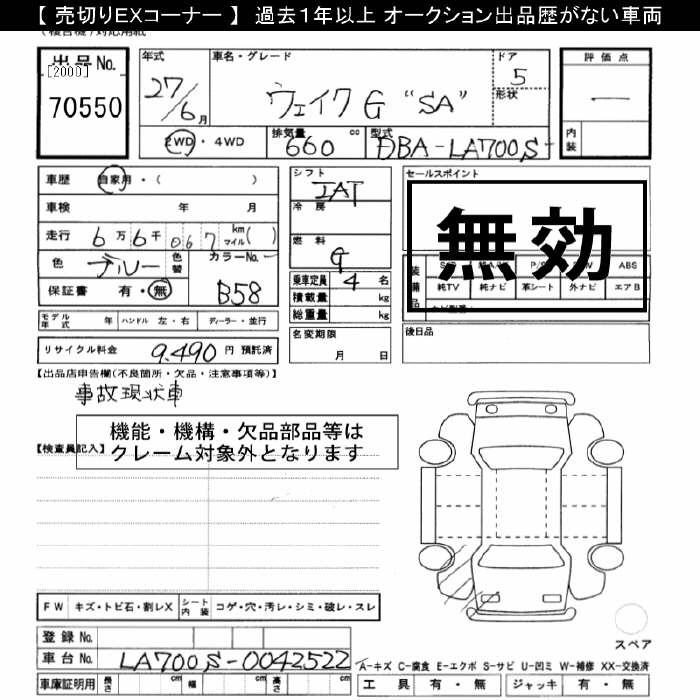 【 売切りEXコーナー 】 過去1年以上 オークション出品歴がない車両
出品No.
[2000]
70550
年式
27/6月
車名・グレード
ウェイク G "SA"
ドア
5
形状
評価点
ー
内装
2WD ・ 4WD
排気量
660 cc
型式
DBA-LA700S-
車歴 自家用・( )
車検 年 月
走行 6万6千067 km マイル( )
色 ブルー 色替 カラーNo. B58
保証書 有・無
シフト
IAT
冷房
燃料
G
乗車定員 4 名
積載量 kg
総重量 kg
セールスポイント
無効
装備品
ABS
純TV 純ナビ 革シート 外ナビ エアB
後日品
モデル年式 年 ハンドル 左・右 ディーラー・並行
リサイクル料金 9,490 円 預託済
名変期限
月 日
【出品店申告欄(不良箇所・欠品・注意事項等)】
事故現状車
機能・機構・欠品部品等は
クレーム対象外となります
【検査員記入】
FW キズ・トビ石・割レX シート内装 コゲ・穴・汚レ・シミ・破レ・スレ
登録No.
車台No. LA700S-0042522
車庫証明用 長さ cm 幅 cm 高さ cm
スペア
A-キズ C-腐食 E-エクボ S-サビ U-凹ミ W-補修 XX-交換済
工具 有・無 ジャッキ 有・無